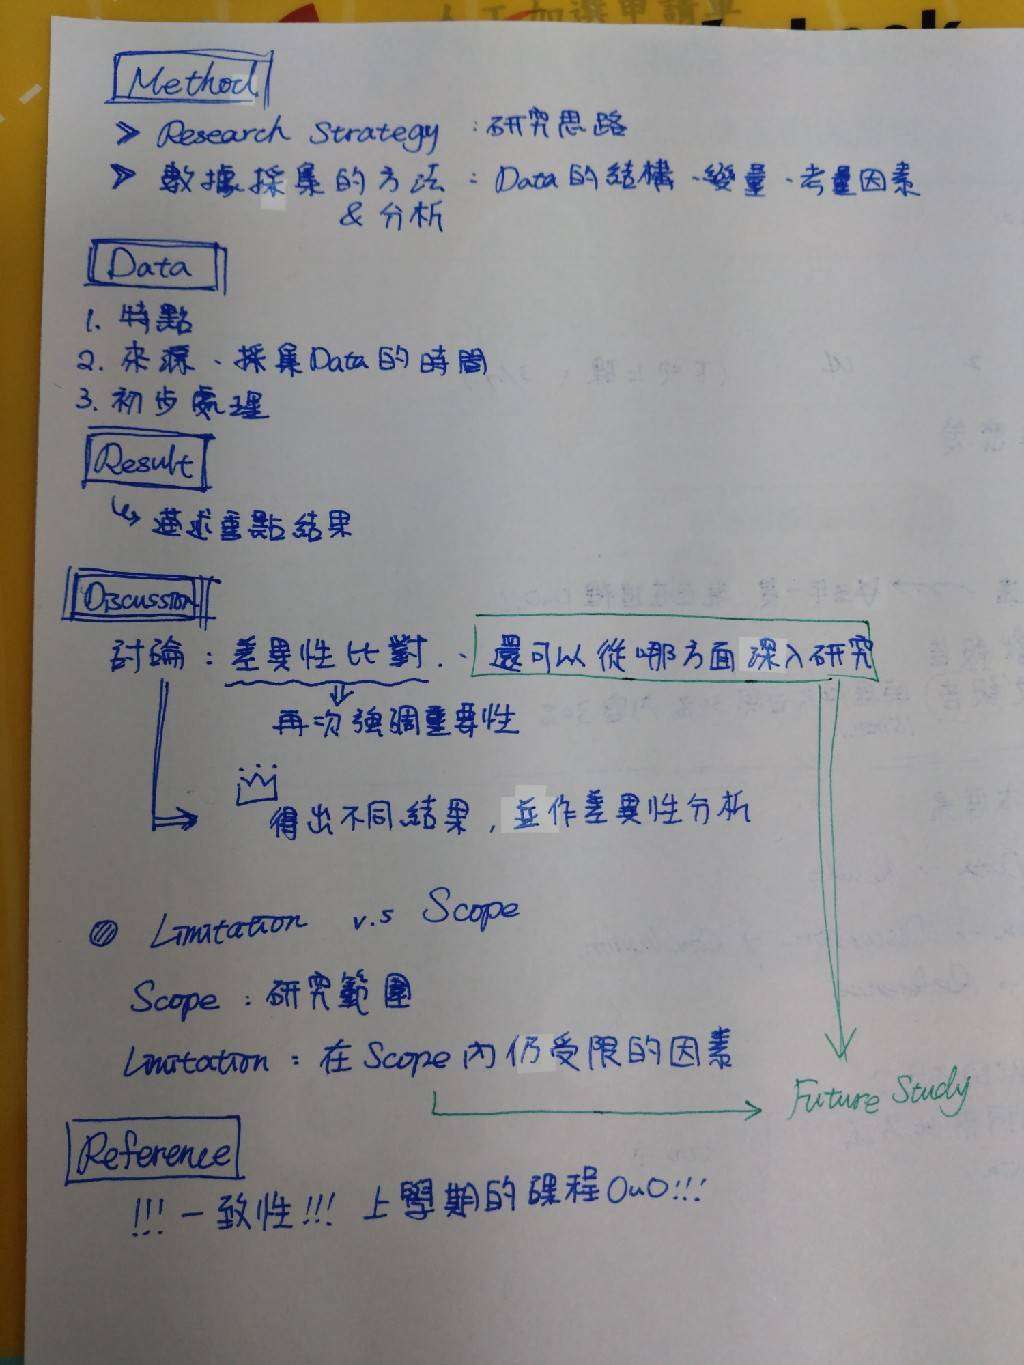 人工加選申請單
Method
➤ Research Strategy : 研究思路
➤ 數據採集的方法 : Data的結構、變量、考量因素
& 分析
Data
1. 特點
2. 來源、採集Data的時間
3. 初步處理
Result
↳ 描述重點結果
Discussion
討論 : 差異性比對、還可以從哪方面深入研究
再次強調重要性
得出不同結果，並作差異性分析
Limitation v.s Scope
Scope : 研究範圍
Limitation : 在Scope內仍受限的因素
Future Study
Reference
!!! 一致性!!! 上學期的課程OuO!!!